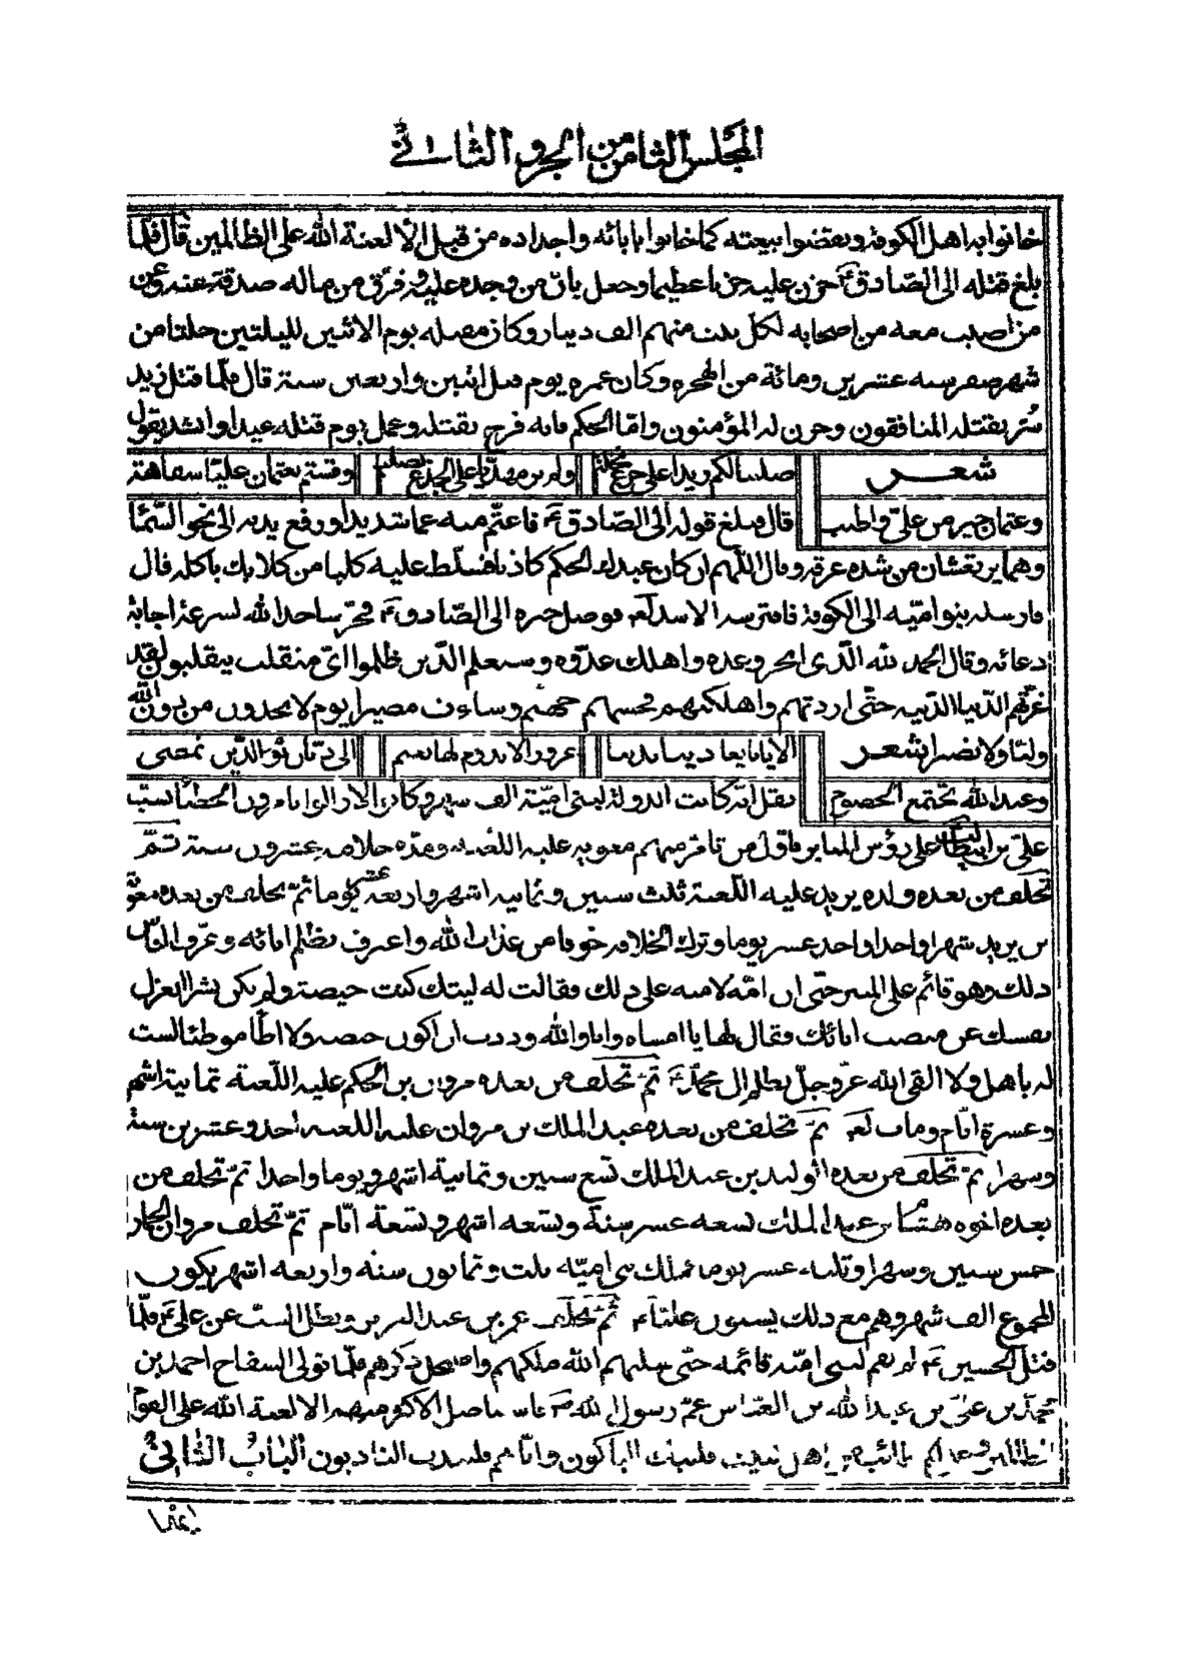 المجلس الثامن من الجزو الثاني
خانوا به اهل الكوفة ونقضوا بيعته كما خانوا بابائه واجداده من قبل الا لعنة الله على الظالمين قال فلما
بلغ قتله الى الصادق ع حزن عليه حزنا عظيما وجعل يان من وجده عليه وفرق من ماله صدقة عنه وعن
من اصلب معه من اصحابه لكل بيت منهم الف دينار وكان مقتله يوم الاثنين لليلتين خلتا من
شهر صفر سنه عشرين ومائة من الهجرة وكان عمره يوم قتل اثنين واربعين سنة قال فلما قتل زيد
سر بقتله المنافقون وحزن له المؤمنون واما الحكم فانه فرح بقتله وعمل يوم قتله عيدا وانشد يقول
شعر صلبنا لكم زيدا على جذع نخلة ولم نر مهديا على الجذع يصلب وقستم بعثمان عليا سفاهة
وعثمان خير من علي واطيب قال فبلغ قوله الى الصادق ع فاغتم منه غما شديدا ورفع يديه الى نحو السما
وهما يرتعشان من شده عرقه وقال اللهم ان كان عبدك الحكم كاذبا فسلط عليه كلبا من كلابك ياكله قال
فارسله بنوا اميه الى الكوفة فافترسه الاسد فوصل خبره الى الصادق ع فخر ساجدا لله لسرعة اجابة
دعائه وقال الحمد لله الذي انجز وعده واهلك عدوه وسيعلم الذين ظلموا اي منقلب ينقلبون لقد
غرتهم الدنيا الدنيه حتى اردتهم واهلكتهم فحسبهم جهنم وساءت مصيرا يوم لا يجدون من دون الله
وليا ولا نصيرا شعر الا يا بايعا دينا بدنيا غرور لا يدوم لها نعيم الى ديان يوم الدين نمضي
وعند الله تجتمع الخصوم نقل انه كانت الدولة لبني امية الف شهر وكان
على رؤس المنابر فاول من تامر منهم معويه عليه اللعنه ومده خلافته عشرون سنة ثم
تخلف من بعده ولده يزيد عليه اللعنة ثلث سنين وثمانيه اشهر واربعة عشر يوما ثم تخلف من بعده معوية
بن يزيد شهرا واحدا واحد عشر يوما وترك الخلافه خوفا من عذاب الله واعترف بظلم ابائه وعرف الناس
ذلك وهو قائم على المنبر حتى ان امه لامته على ذلك وقالت له ليتك كنت حيضة ولم تكن بشرا اتعزل
نفسك عن منصب ابائك وقال لها يا اماه وانا والله وددت ان اكون حيضه ولا اطأ موطئا لست
له باهل ولا القى الله عز وجل بظلم ال محمد ثم تخلف من بعده مروان بن الحكم عليه اللعنة ثمانية اشهر
وعشرة ايام ومات ثم تخلف من بعده عبد الملك بن مروان عليه اللعنه احد وعشرين سنة
وشهرا ثم تخلف من بعده الوليد بن عبد الملك تسع سنين وثمانية اشهر ويوما واحدا ثم تخلف من
بعده اخوه هشام بن عبد الملك تسعه عشر سنة وتسعه اشهر وتسعة ايام ثم تخلف مروان الحمار
خمس سنين وشهرا عشر يوما فملك بني اميه ثلث وثمانون سنه واربعه اشهر يكون
المجموع الف شهر وهم مع ذلك يسبون عليا ع ثم تخلف عمر بن عبد العزيز وبطل السب عن علي ع فلما
قتل الحسين ع لم يقم لبني اميه قائمه حتى سلبهم الله ملكهم واضمحل ذكرهم فلما تولى السفاح احمد بن
محمد بن علي بن عبد الله بن العباس عم رسول الله الا لعنة الله على القوم
الظالمين اهل بيت فليبك الباكون واياهم فليندب النادبون الباب الثاني